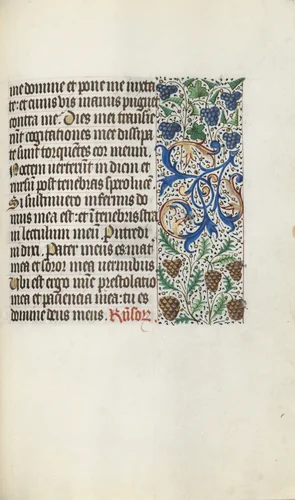 me domine et pone me iuxta
te: et cuius vis manus pugnet
contra me. Dies mei transie
runt cogitationes mee dissipa
te sunt torquentes cor meum.
Noctem verterūt in diem et
rursū post tenebras spero lucē.
Si sustinuero infernus do
mus mea est: et ī tenebris stra
vi lectulum meū. Putredi
ni dixi. Pater meus es mat
mea et soror mea vermibus.
Ubi est ergo nūc prestolatio
mea et paciencia mea: tu es
domine deus meus.